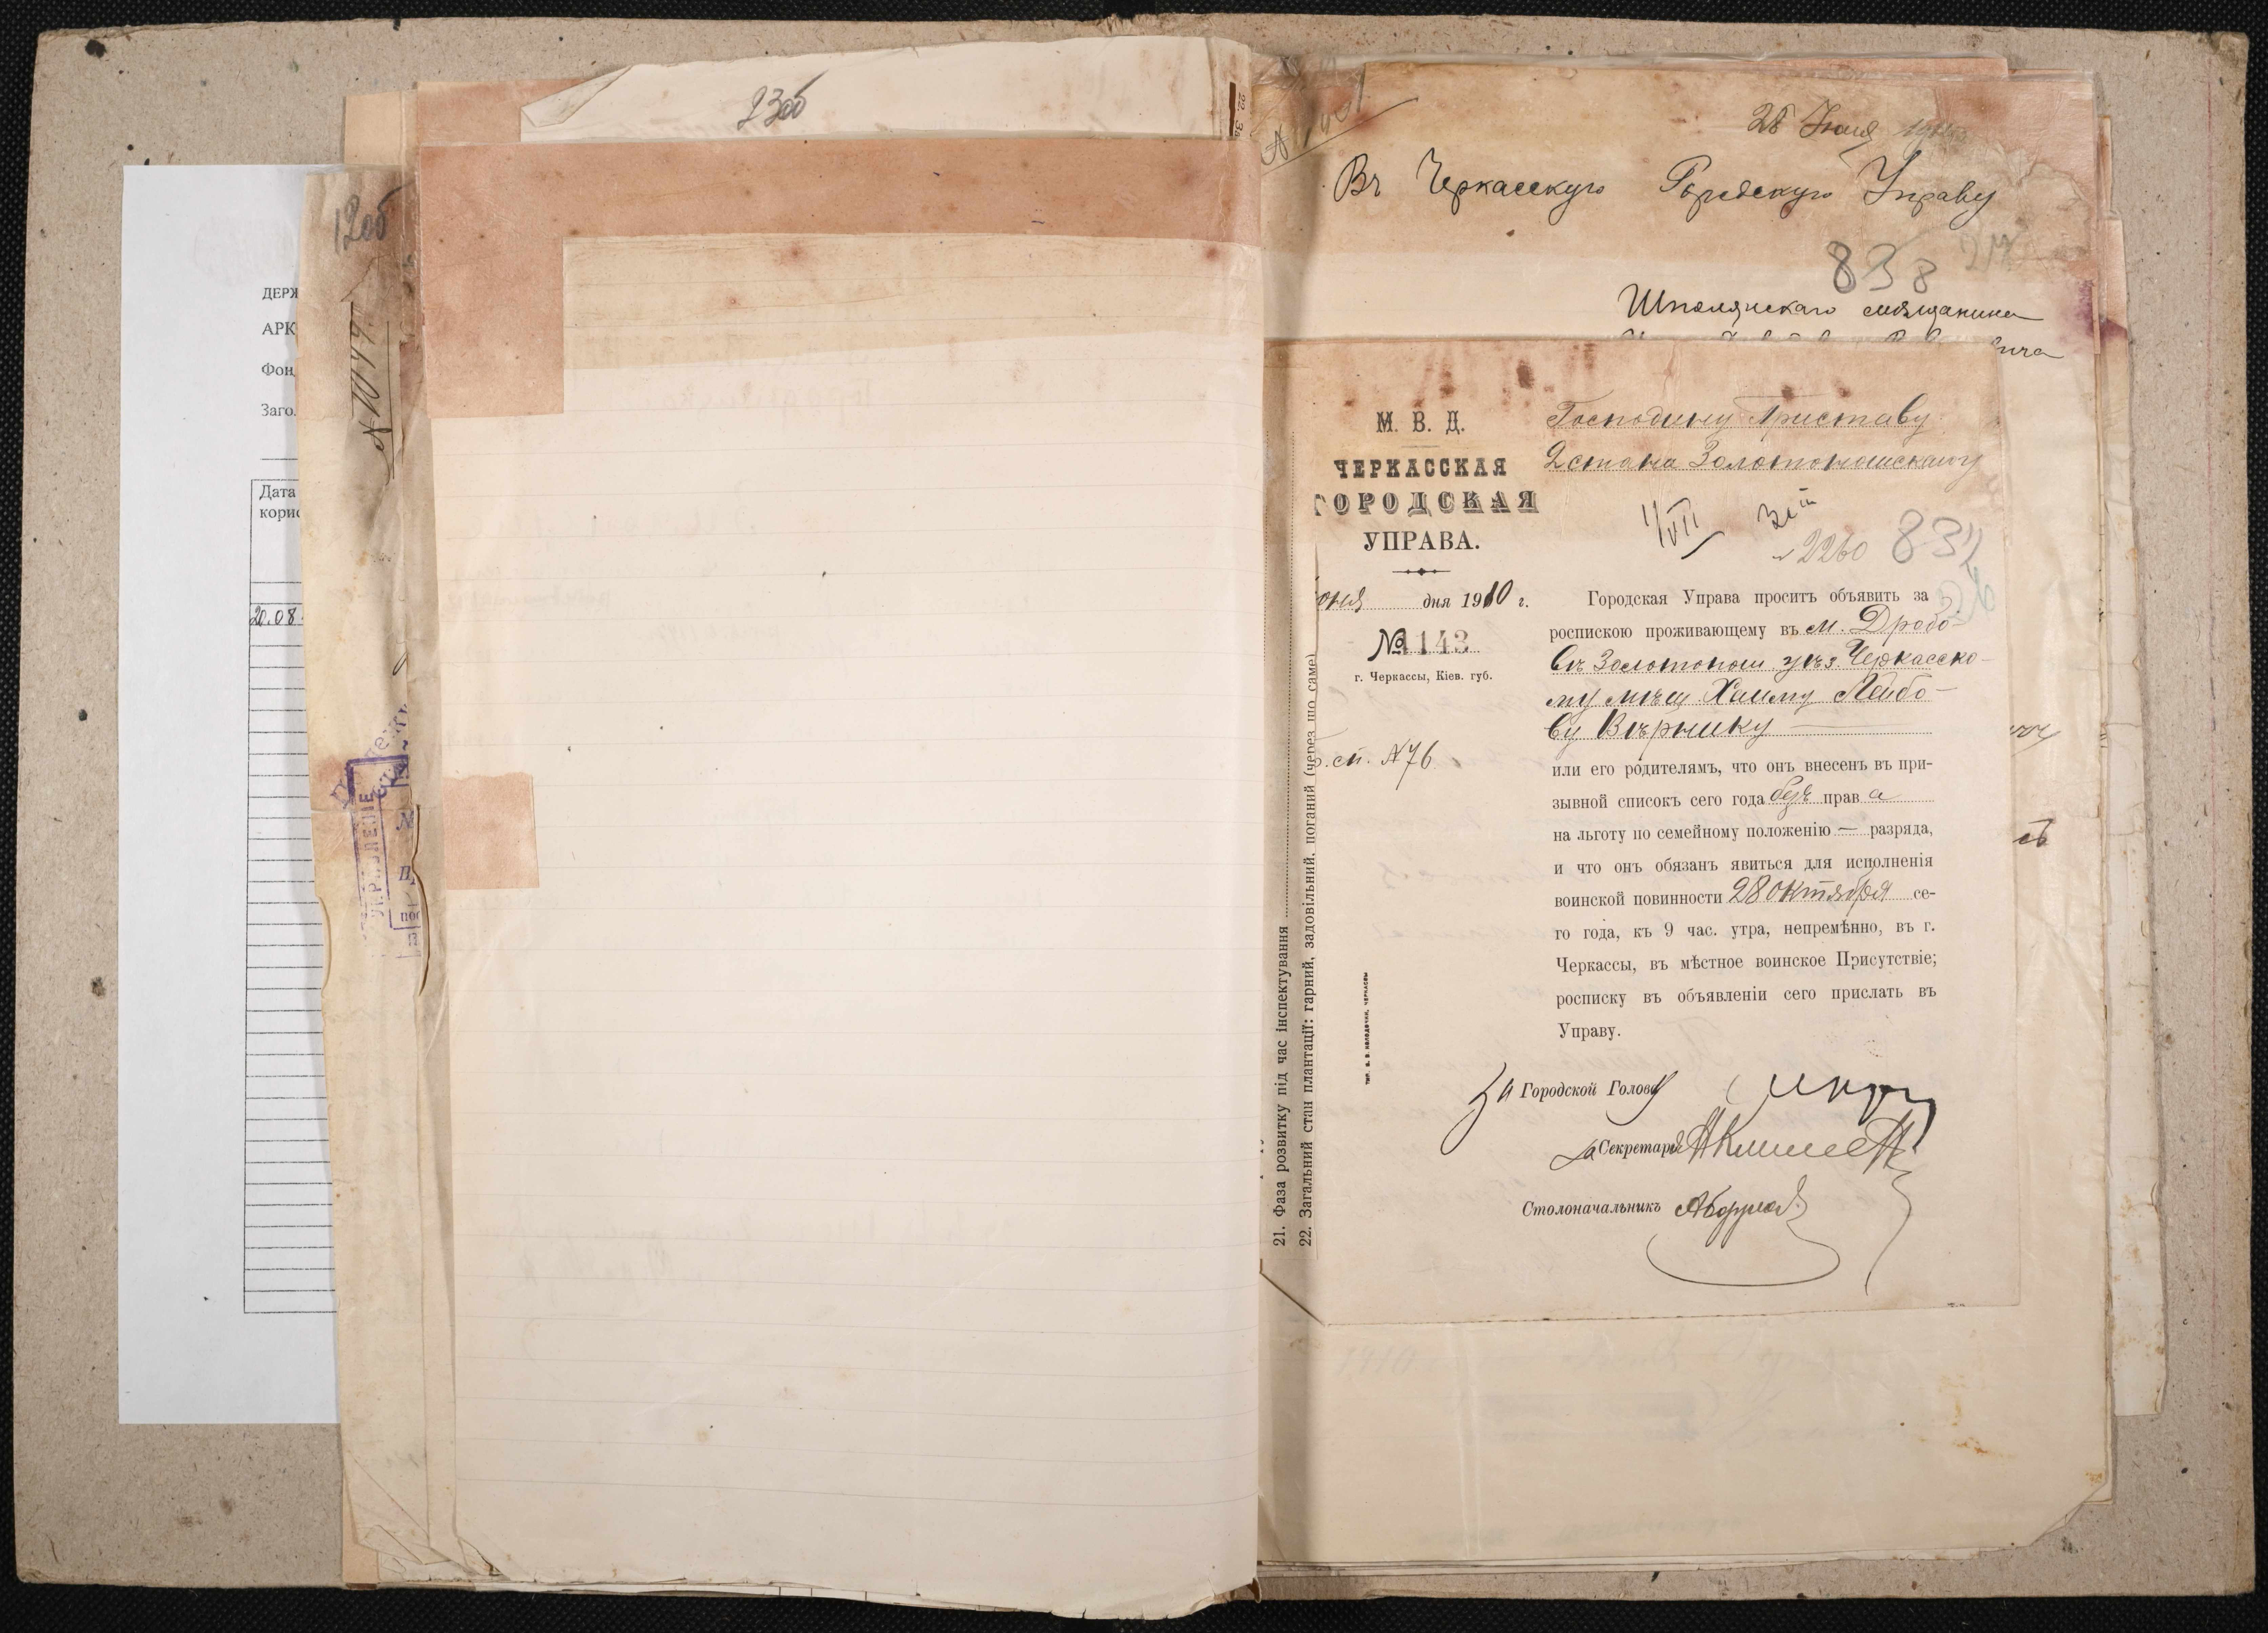 23об
12об
N 1044.
ДЕРЖ
АРК
Фон
Заго.
Дата
корис
20.08.
28 Июня
Въ Черкасскую Городскую Управу
838
Шполянскаго мѣщанина
М. В. Д.
ЧЕРКАССКАЯ
ГОРОДСКАЯ
УПРАВА.
дня 1910 г.
№ 1143
г. Черкассы, Кіев. губ.
N 76
Господину Приставу
2 стана Золотоношскаго
1/VII
2260
832
Городская Управа проситъ объявить за
роспискою проживающему въ м. Драбо-
въ Золотонош уѣз. Черкасско-
му мѣщ Хаиму Лейбо-
ву Вѣрнику
или его родителямъ, что онъ внесенъ въ при-
зывной списокъ сего года безъ права
на льготу по семейному положенію — разряда,
и что онъ обязанъ явиться для исполненія
воинской повинности 28 октября се-
го года, къ 9 час. утра, непремѣнно, въ г.
Черкассы, въ мѣстное воинское Присутствіе;
росписку въ объявленіи сего прислать въ
Управу.
За Городской Голову
За Секретаря
Столоначальникъ
21. Фаза розвитку під час інспектування
22. Загальний стан плантації: гарний, задовільний, поганий (через що саме)